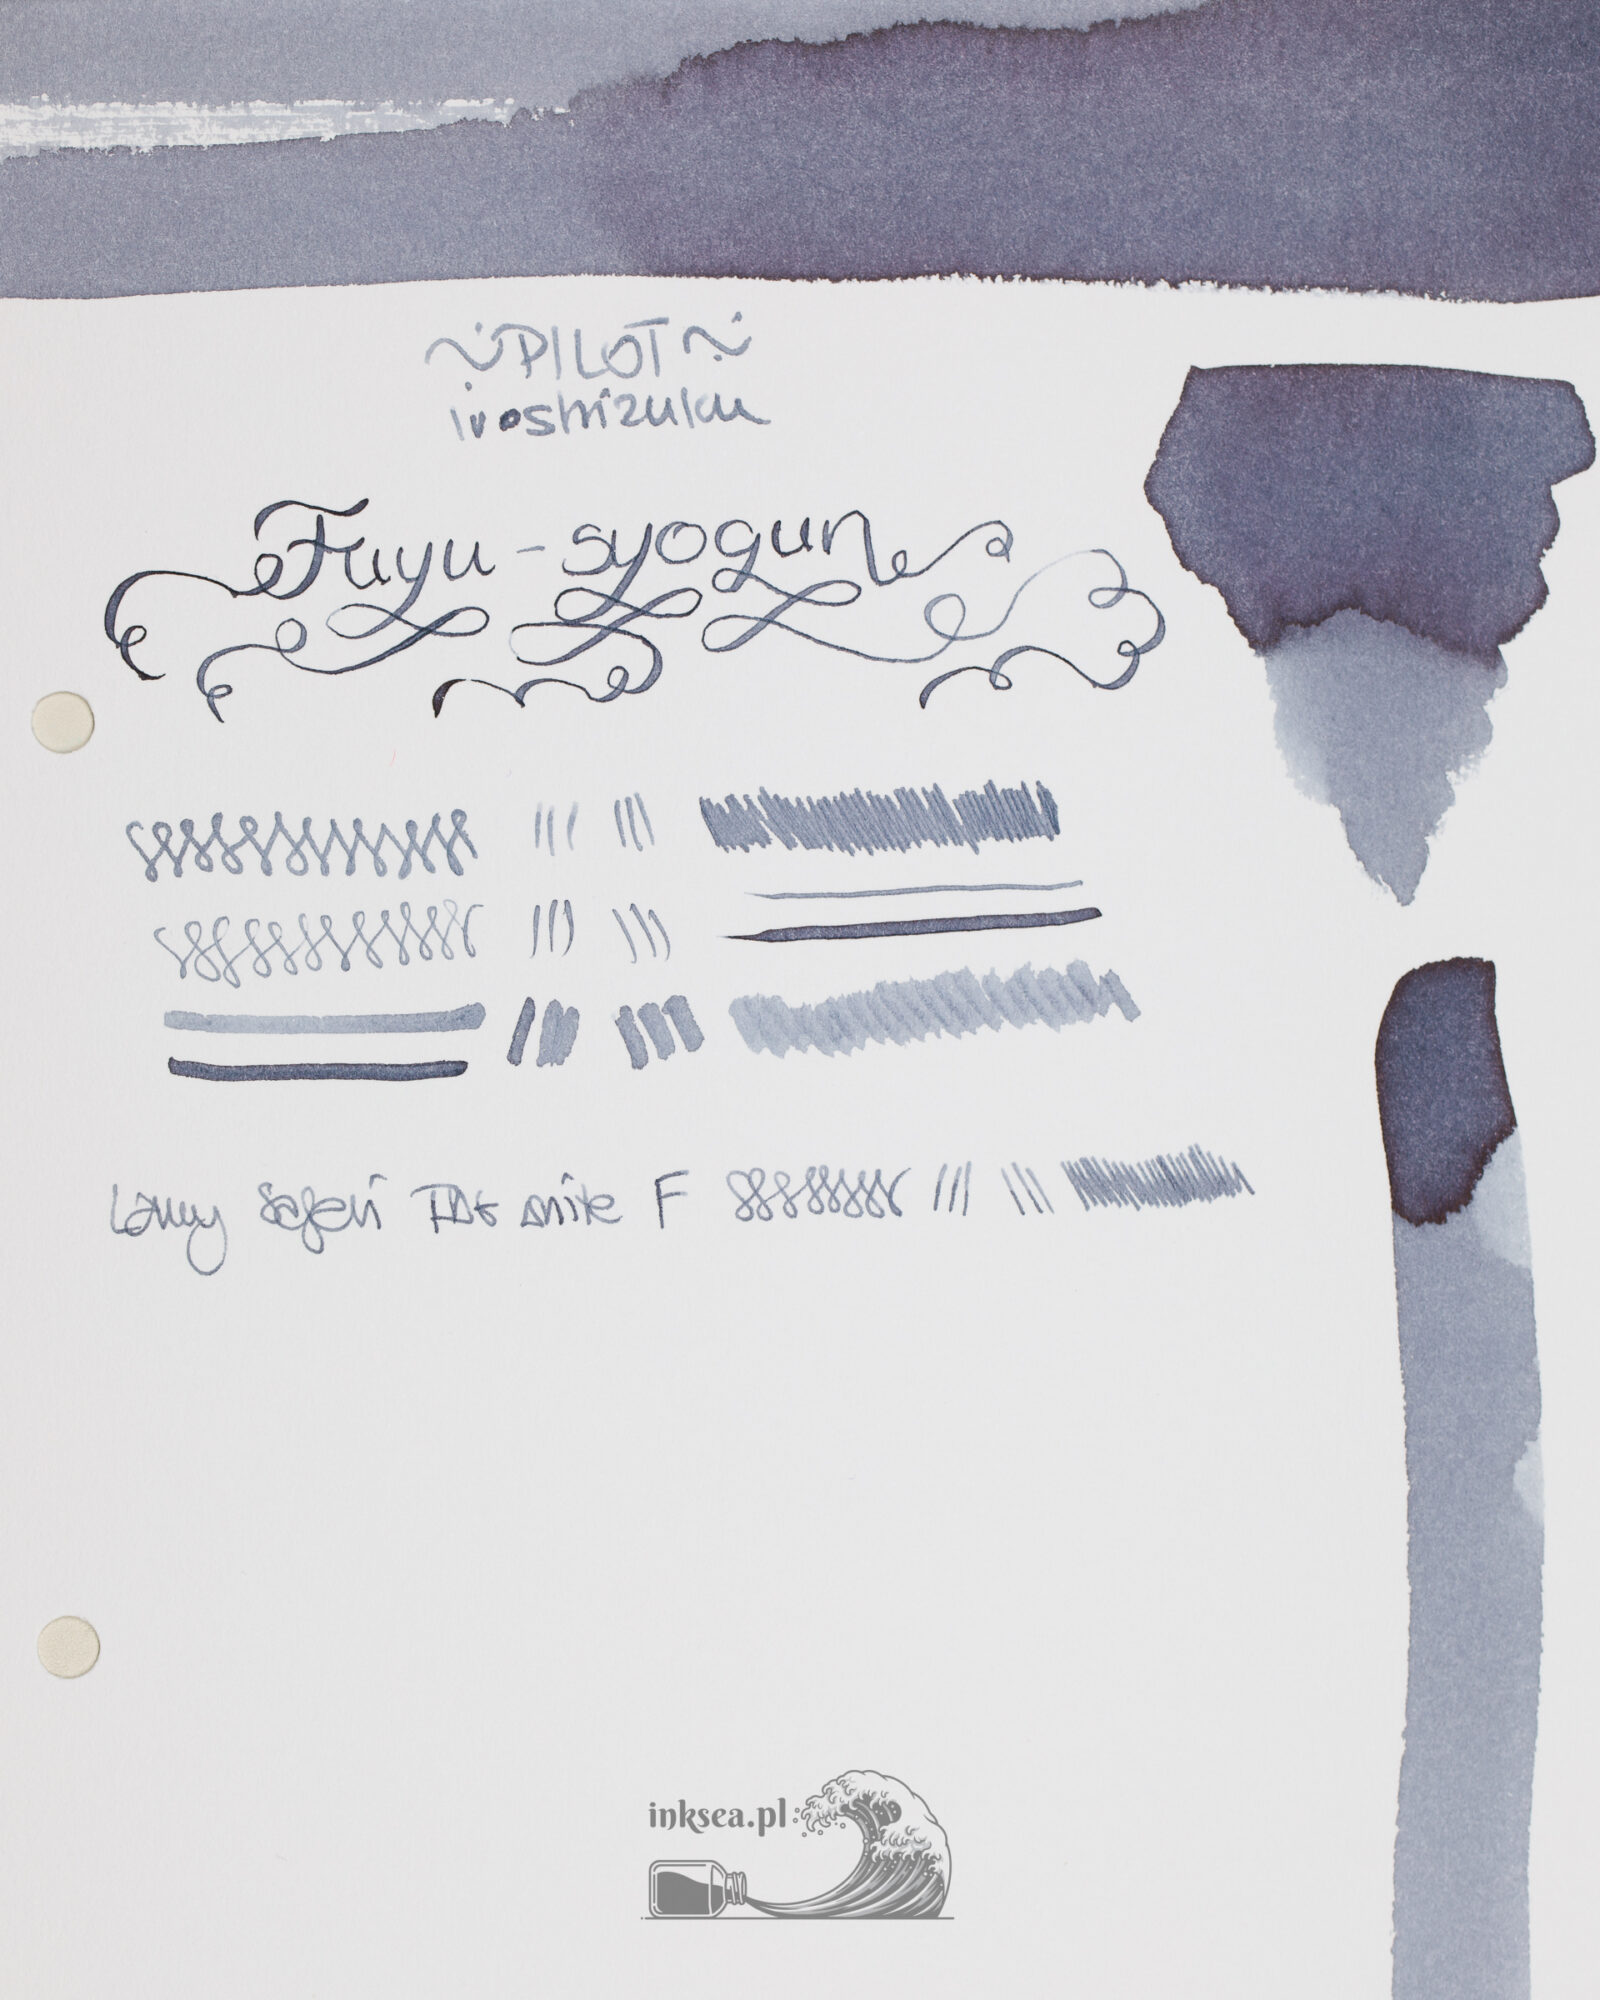 ~PILOT~
iroshizuku
Fuyu-syogun
Lamy Safari F
inksea.pl